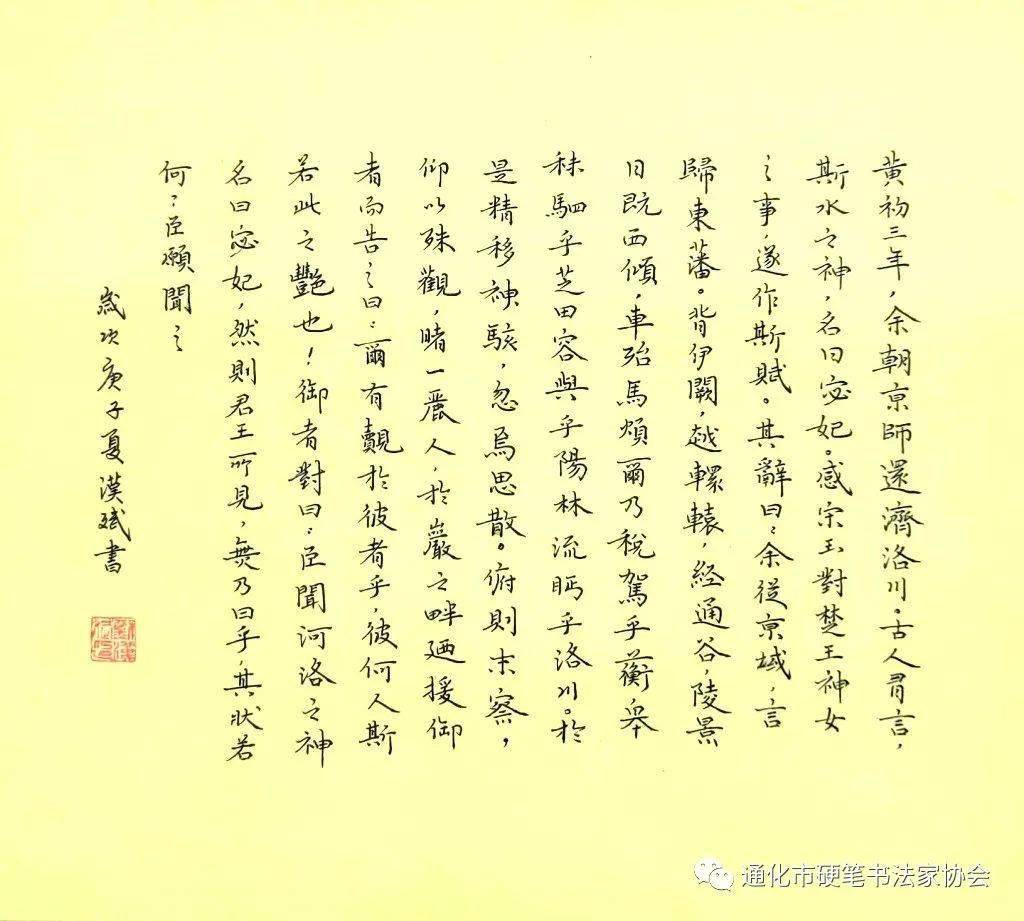 黄初三年，余朝京師還濟洛川。古人有言，
斯水之神，名曰宓妃。感宋玉對楚王神女
之事，遂作斯賦。其辭曰：余從京域，言
歸東藩。背伊闕，越轘轅，經通谷，陵景
日既西傾，車殆馬煩爾乃稅駕乎蘅皋
秣駟乎芝田容與乎陽林流眄乎洛川。於
是精移神駭，忽焉思散。俯則未察，
仰以殊觀，睹一麗人，於巖之畔迺援御
者而告之曰：爾有覿於彼者乎，彼何人斯
若此之豔也！御者對曰：臣聞河洛之神
名曰宓妃，然則君王所見，無乃曰乎，其狀若
何：臣願聞之
歲次庚子夏漢斌書
通化市硬笔书法家协会